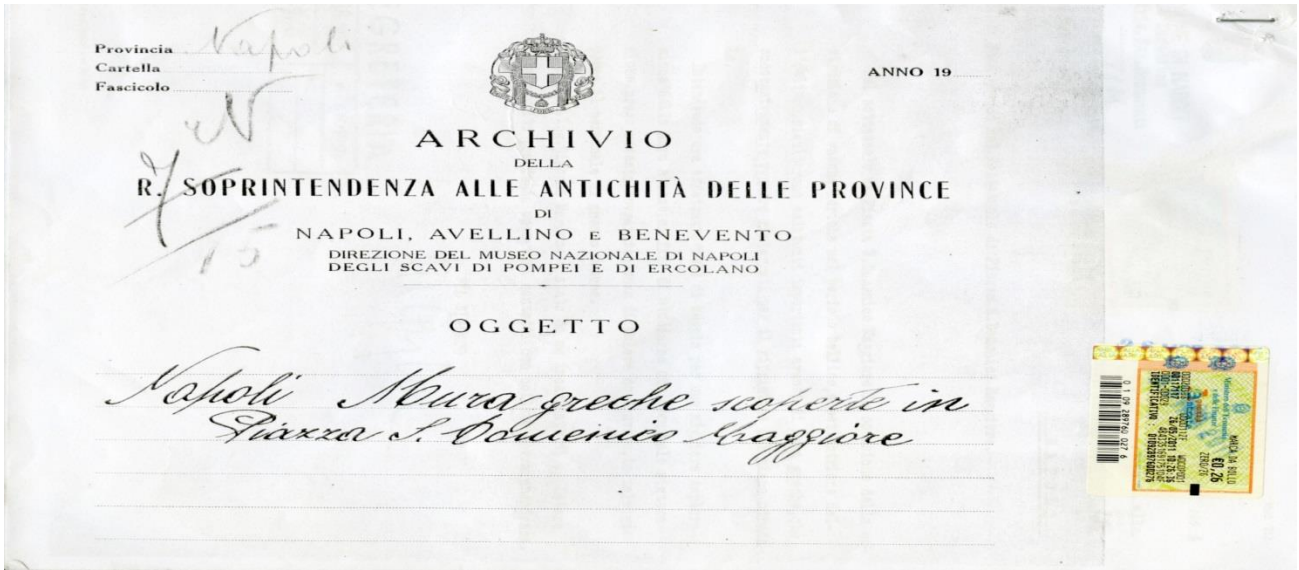 Provincia Napoli
Cartella
Fascicolo
ANNO 19
N
7
15
ARCHIVIO
DELLA
R. SOPRINTENDENZA ALLE ANTICHITÀ DELLE PROVINCE
DI
NAPOLI, AVELLINO E BENEVENTO
DIREZIONE DEL MUSEO NAZIONALE DI NAPOLI
DEGLI SCAVI DI POMPEI E DI ERCOLANO
OGGETTO
Napoli Mura greche scoperte in
Piazza S. Domenico Maggiore
MARCA DA BOLLO
€0,26
ZERO/26
IDENTIFICATIVO
0 1 09 289760 027 6